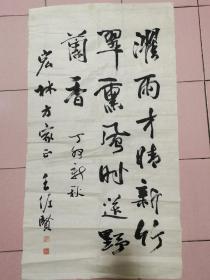 濯雨才情新竹
翠熏風时送野
蘭香 丁酉新秋
宏林方家正